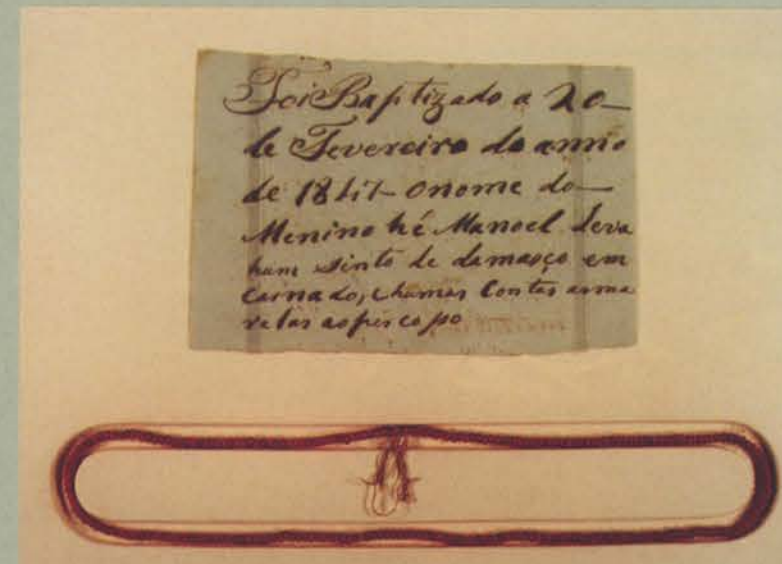 Foi Baptizado a 20
de Fevereiro do anno
de 1847 o nome do
Menino hé Manoel leva
hum sinto de damasço em
carnado, e humas Contas ama
relas ao pescoço